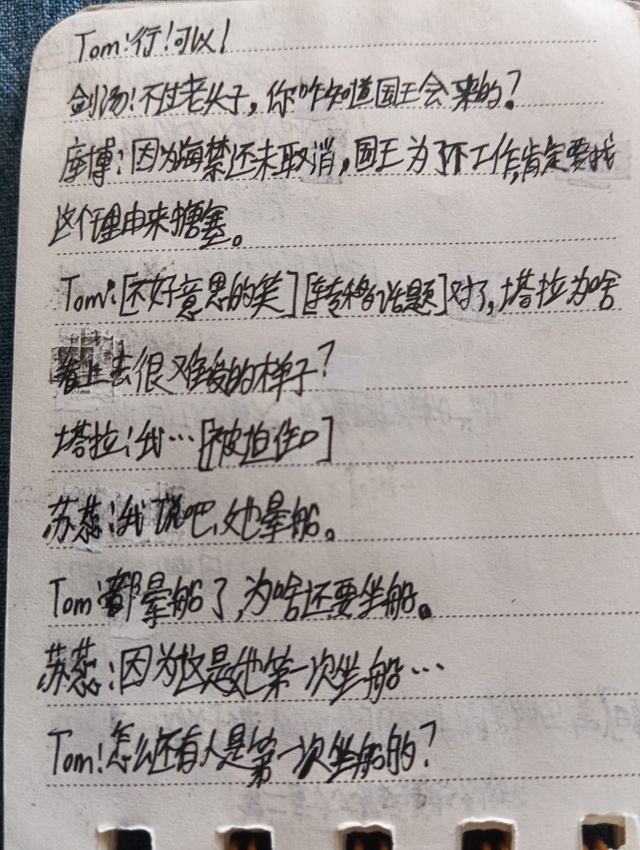 Tom:行!可以!
剑汤:不过老头子,你咋知道国王会来的?
座博:因为海禁还未取消,国王为了不工作,肯定要找
这个理由来搪塞。
Tom:[不好意思的笑][转移话题]对了,塔拉为啥
看上去很难受的样子?
塔拉:我…[被迫住口]
苏蕊:我说吧,她晕船。
Tom:都晕船了,为啥还要坐船。
苏蕊:因为这是她第一次坐船…
Tom:怎么还有人是第一次坐船的?